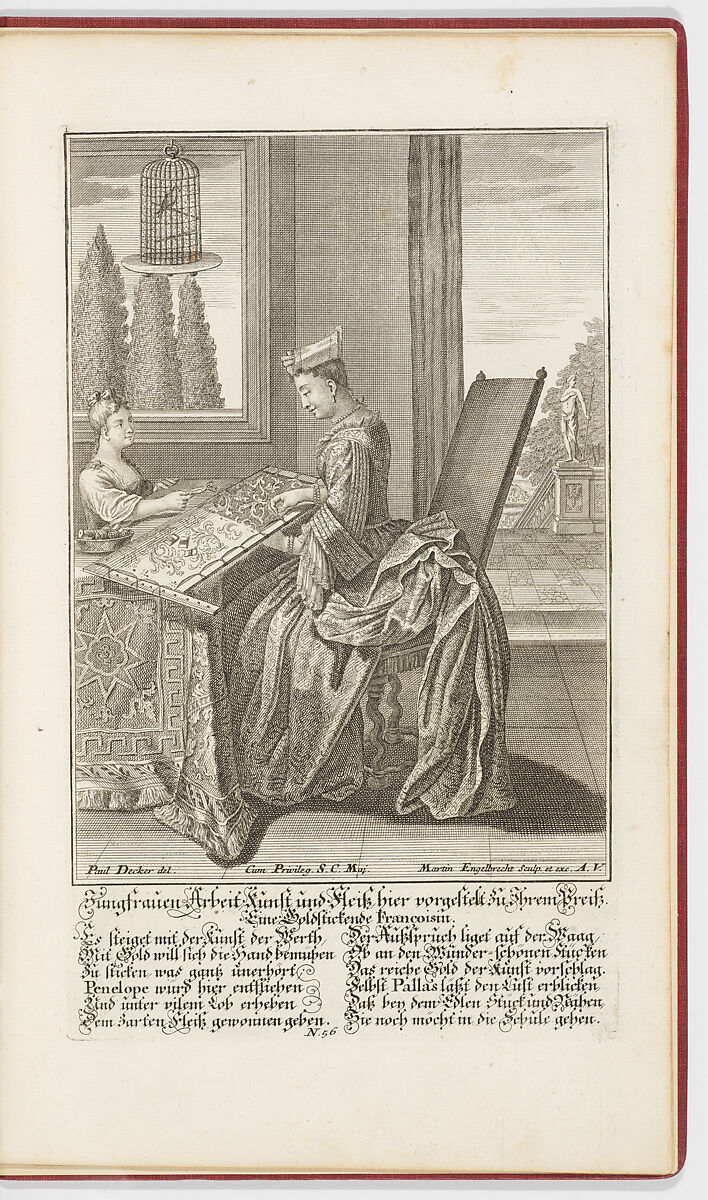 Paul Decker del.
Cum Privileg. S. C. Maj.
Martin Engelbrecht Sculp. et exc. A. V.
Jungfrauen Arbeit Kunst und Fleiß hier vorgestelt zu Ihrem Preiß.
Eine Goldstickende Francoisin.
Es steiget mit der Kunst der Werth,
Mit Gold will sich die Hand bemühen
Zu sticken was gantz unerhört,
Penelope wurd hier entfliehen
Und unter vilem Lob erheben
Dem zarten Fleiß gewonnen geben.
Der Außspruch liget auf der Waag,
Ob an den Wunder-schönen Stucken
Das reiche Gold der Kunst vorschlag.
Selbst Pallas laßt den Lust erblicken
Daß bey dem Edlen Stuck und Nähen
Sie noch möcht in die Schule gehen.
N. 56